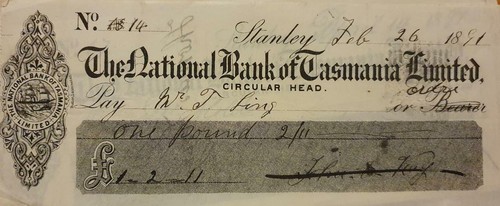 No 14
Stanley Feb 26 1891
The National Bank of Tasmania Limited.
CIRCULAR HEAD.
Pay Mr T. Ling or Bearer
order
One pound 2/11
£1-2-11
THE NATIONAL BANK OF TASMANIA LIMITED